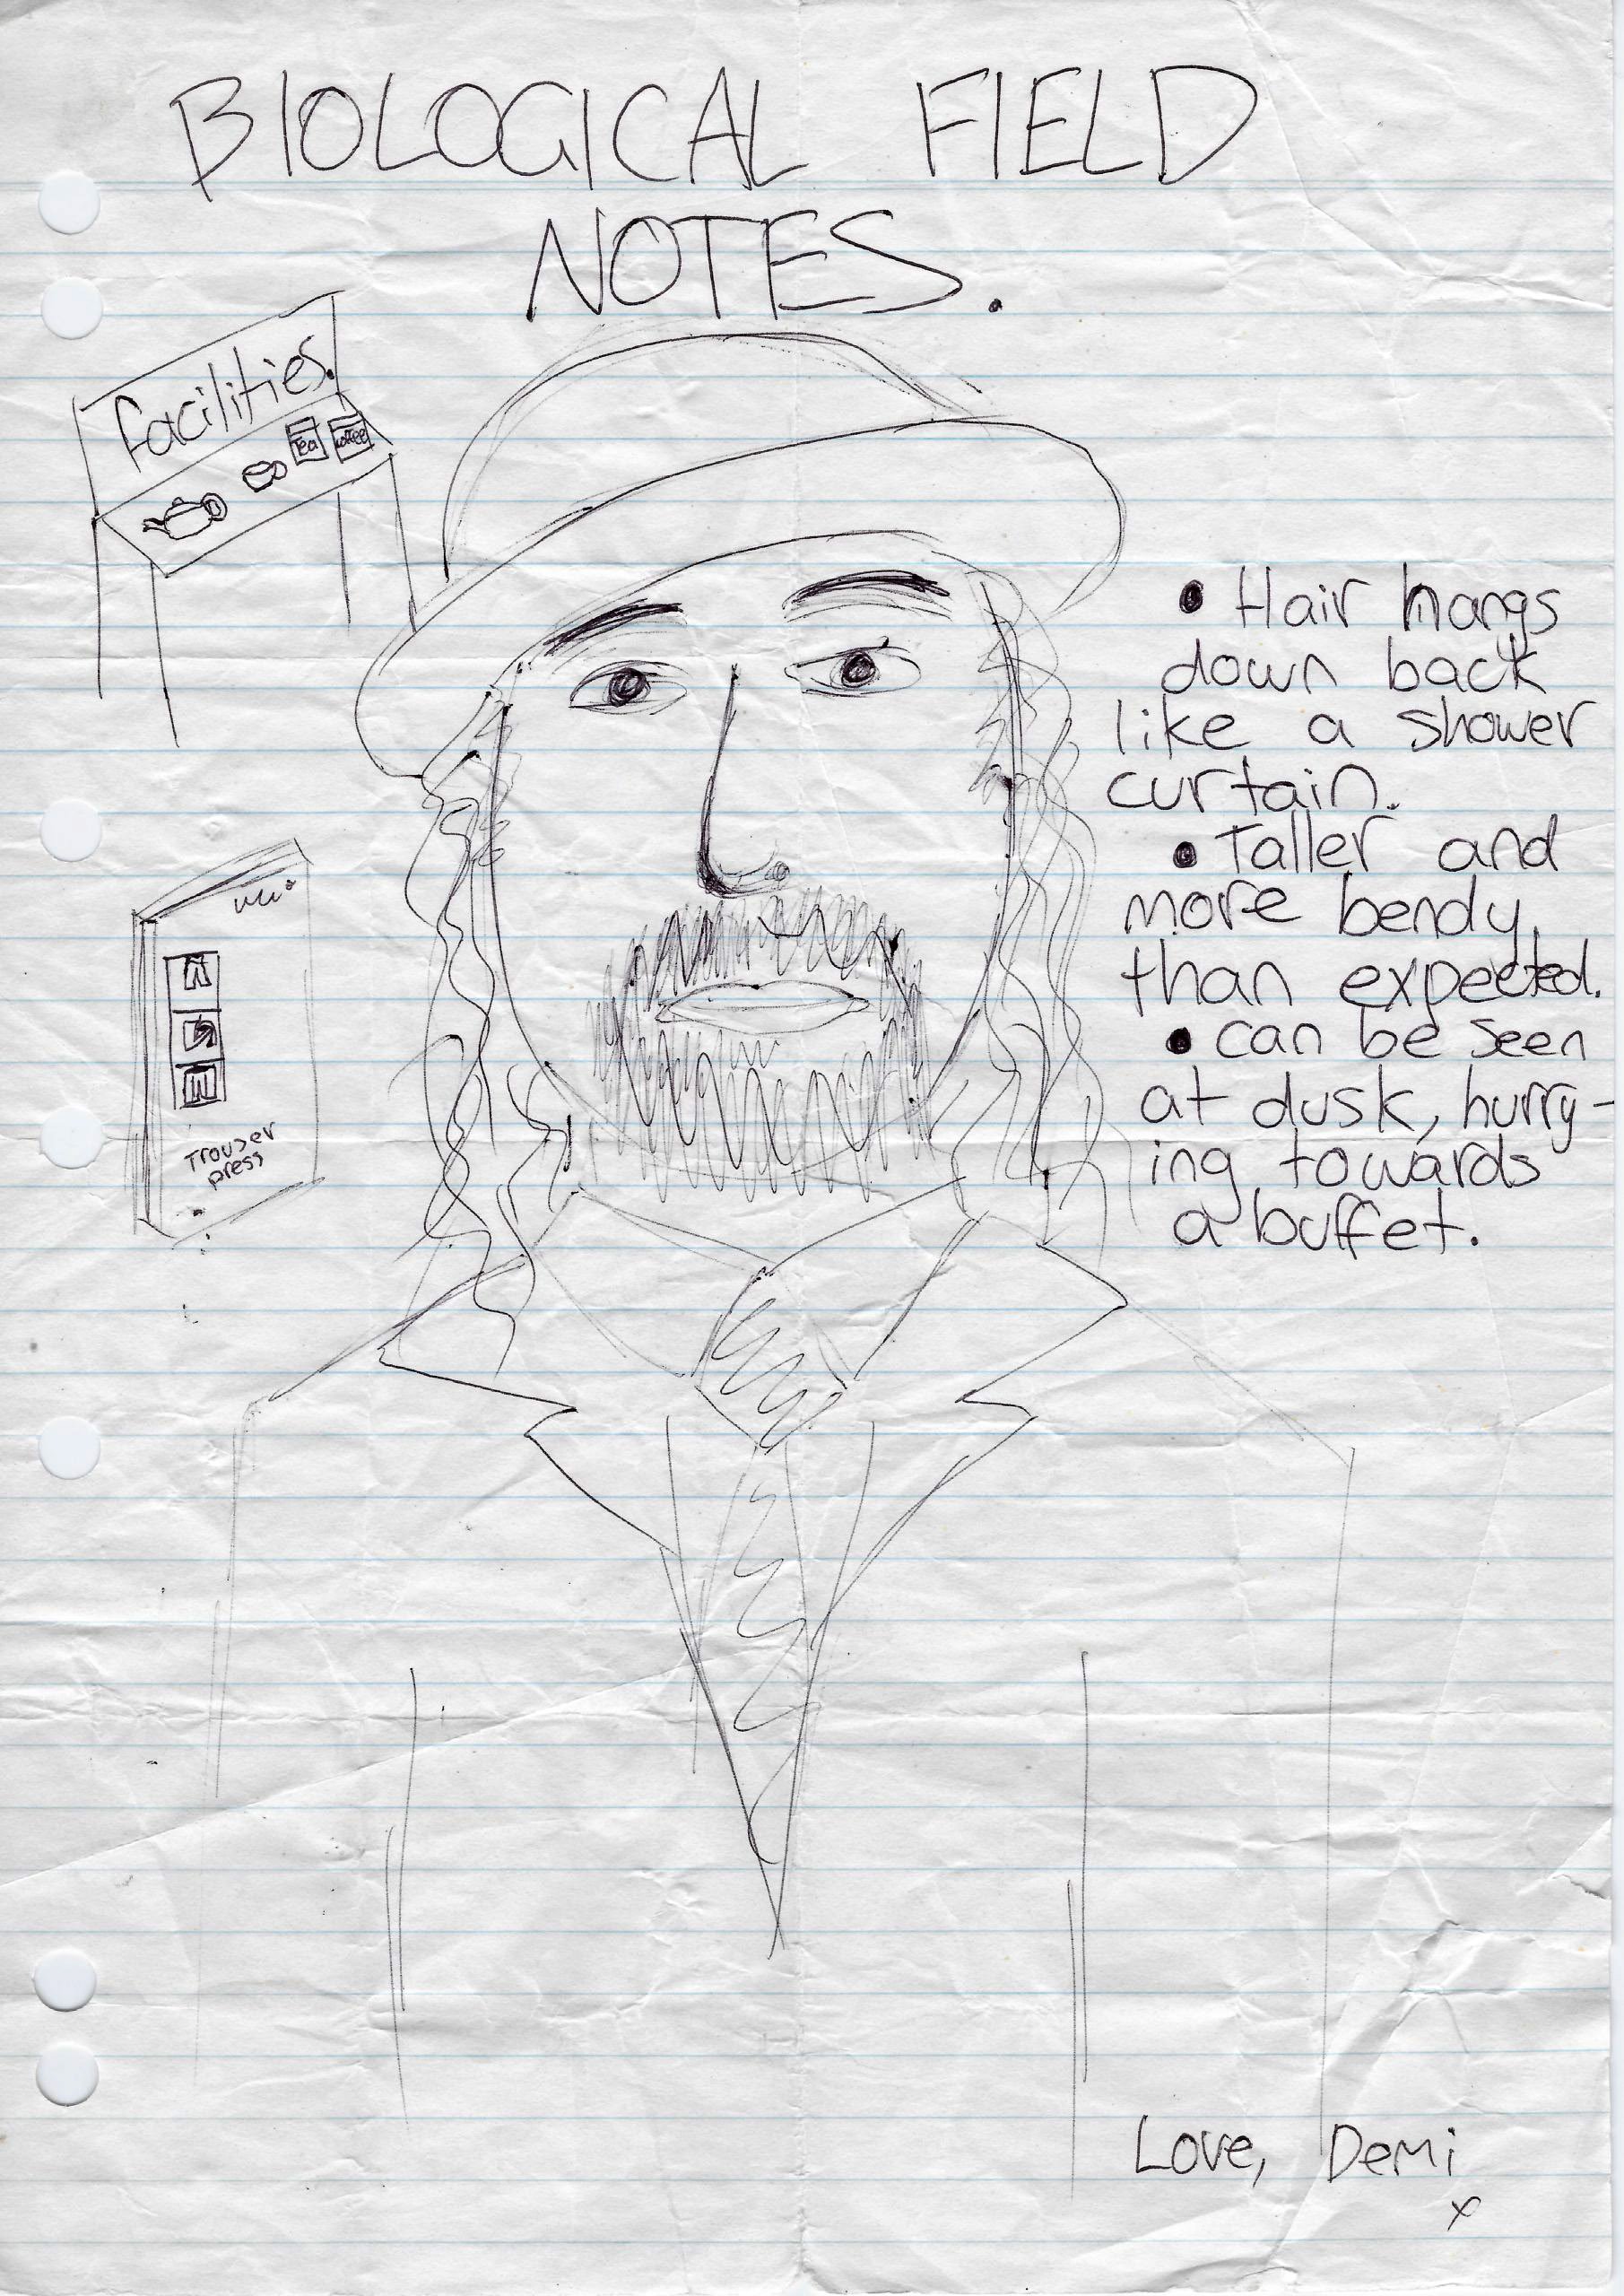 BIOLOGICAL FIELD
NOTES.
facilities.
Tea
coffee
• Hair hangs
down back
like a shower
curtain.
• Taller and
more bendy
than expected.
• can be seen
at dusk, hurry-
ing towards
a buffet.
Trouser
press
Love, Demi
x